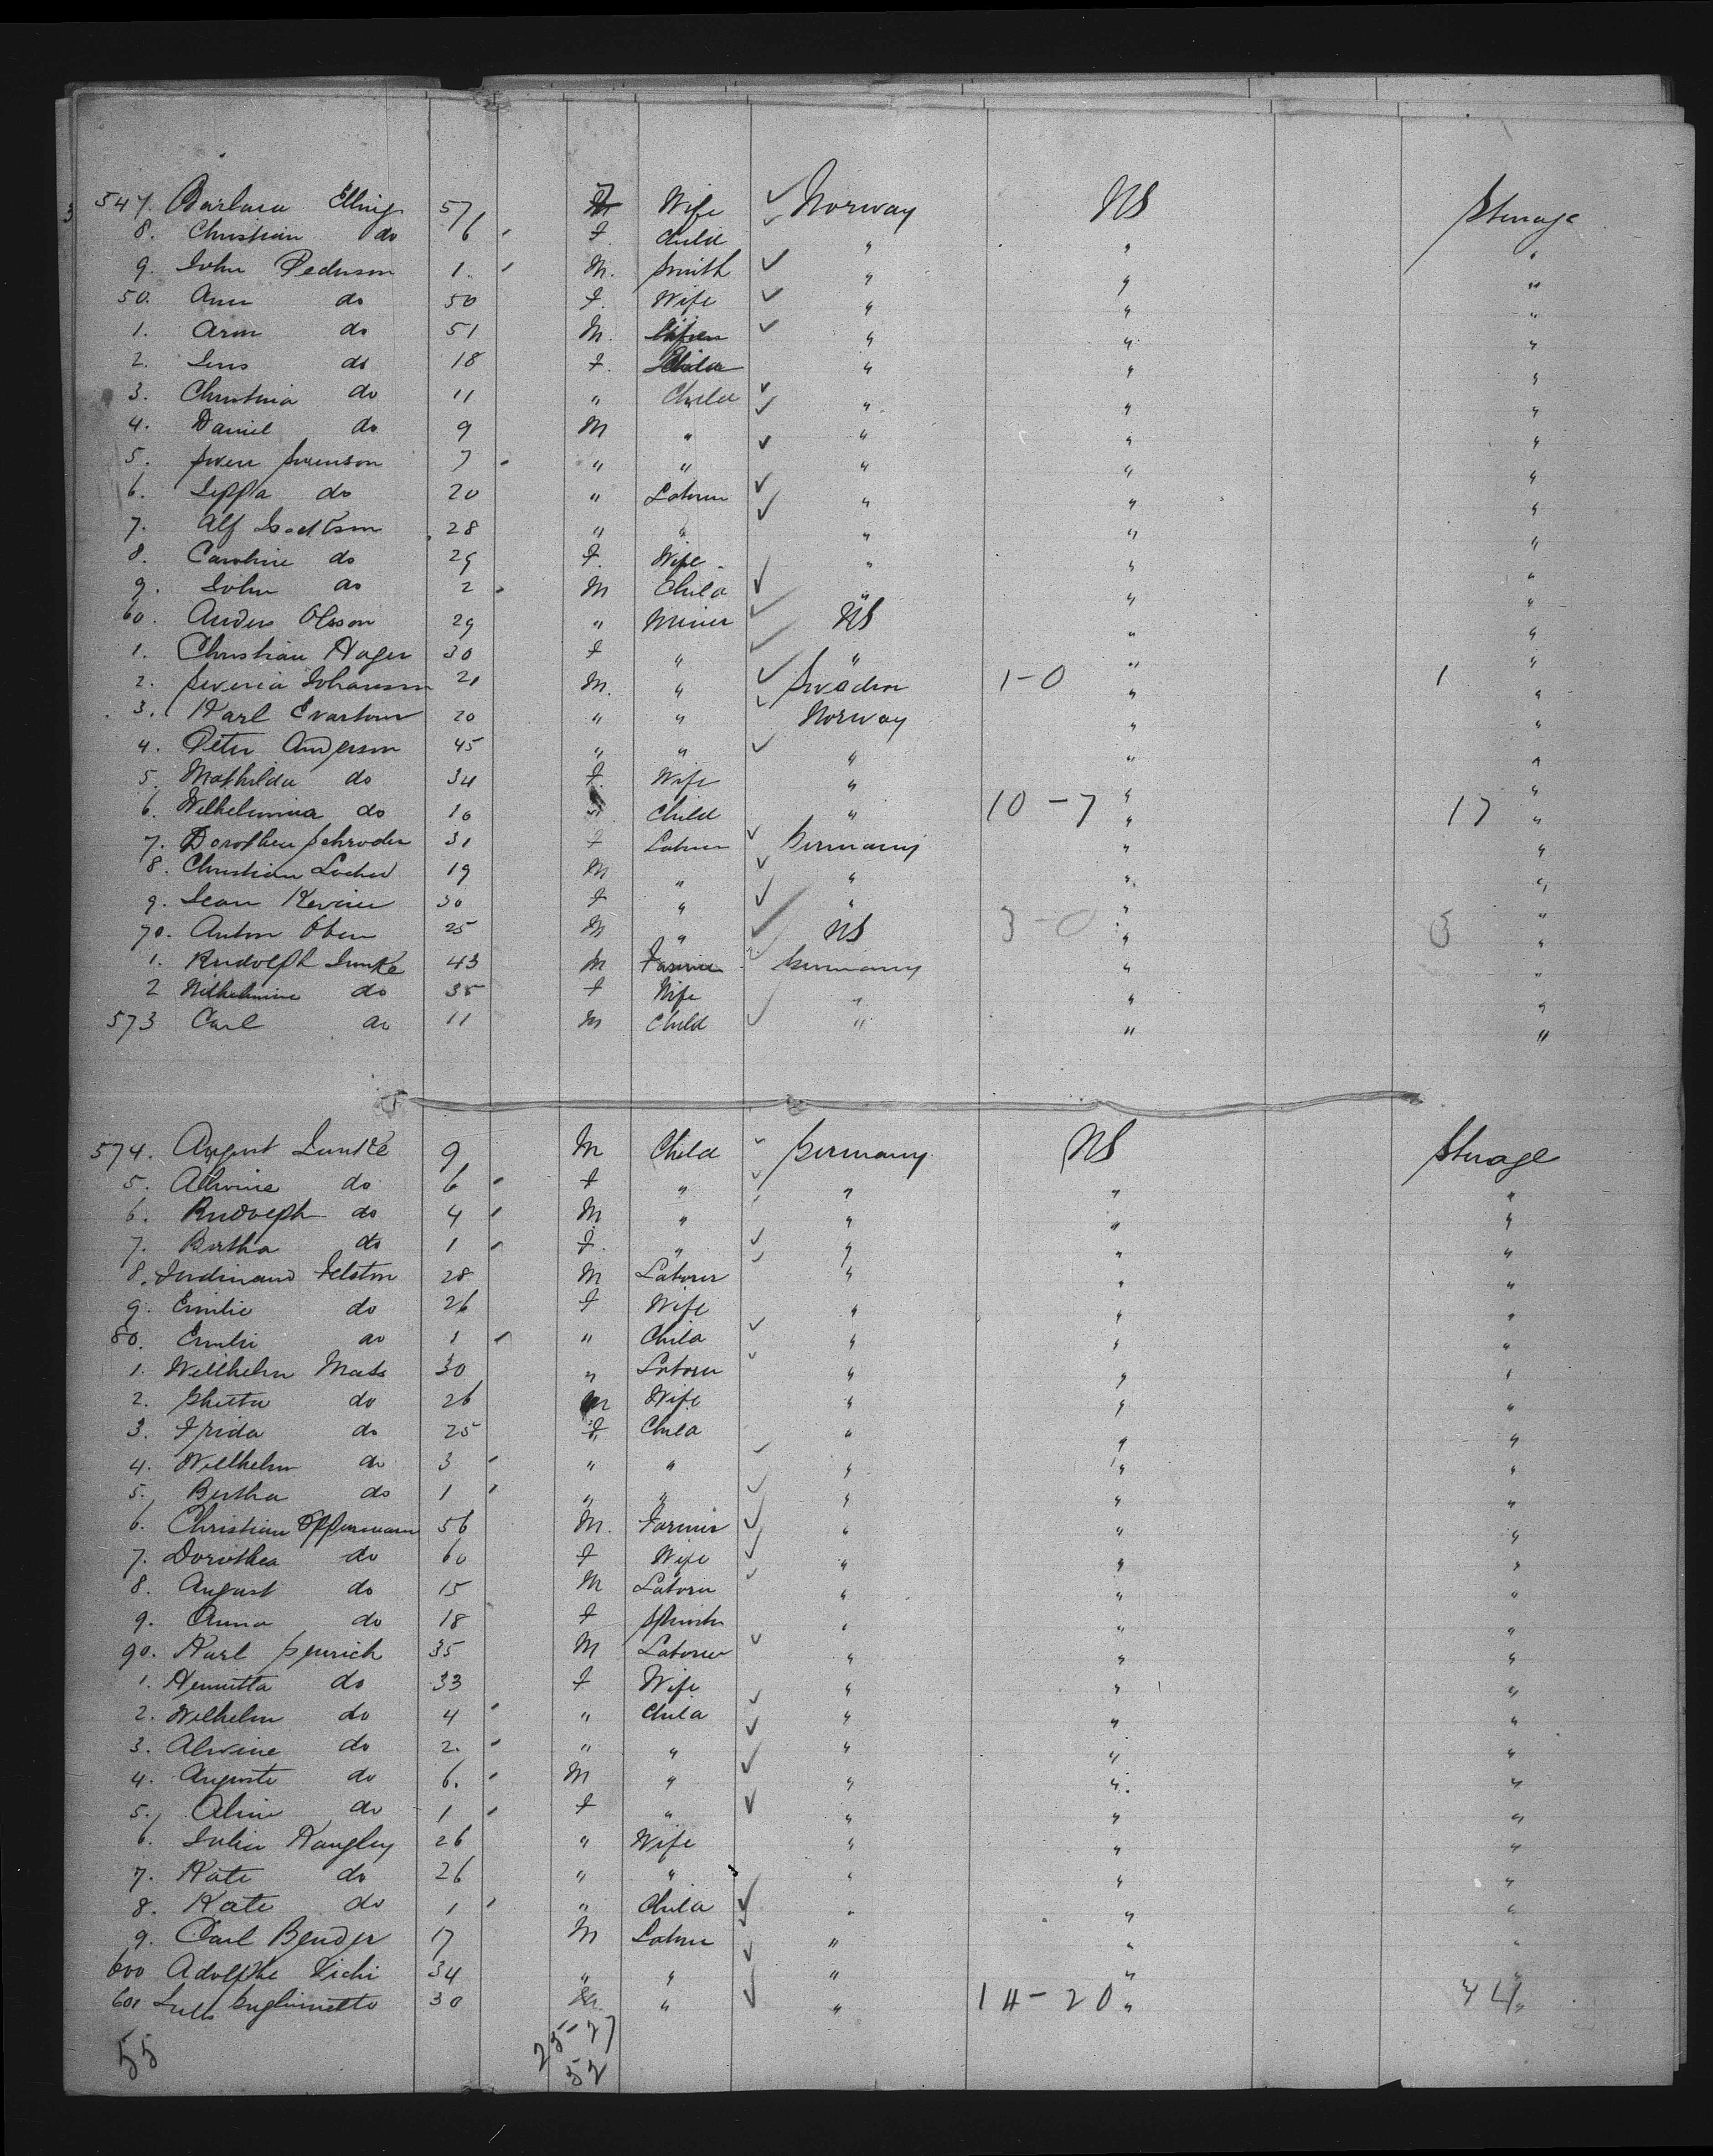 547. Barbara Elling 57 F Wife ✓ Norway US Sterage
8. Christian do 6 F. Child ✓ " " "
9. John Pederson 1. M. Smith ✓ " " "
50. Ann do 50 F. Wife ✓ " " "
1. Arm do 51 M. ✓ " " "
2. Jens do 18 F. " " "
3. Christina do 11 " Child ✓ " " "
4. Daniel do 9 M " ✓ " " "
5. Sven Svenson 7 " " ✓ " " "
6. Seppa do 20 " Laborer ✓ " " "
7. Alf 28 " " ✓ " " "
8. Caroline do 29 F. Wife " " "
9. John do 2 M Child ✓ " " "
60. Anders Olsson 29 " Miner ✓ US " "
1. Christian Hager 30 F " ✓ " " "
2. Johansson 21 M. " ✓ Sweden 1-0 " 1 "
3. Karl Evartson 20 " " ✓ Norway " "
4. Peter Anderson 45 " " ✓ " " "
5. Mathilda do 34 F. Wife " " "
6. Wilhelmina do 10 " Child " 10-7 " 17 "
7. Dorothea Schroder 31 F Laborer ✓ Germany " "
8. Christian Locher 19 M " ✓ " " "
9. Jean 30 F " ✓ " " "
70. Anton 25 M " ✓ US 3-0 " 3 "
1. Rudolph Lunke 43 M Farmer ✓ Germany " "
2 Wilhelmine do 35 F Wife " " "
573 Carl do 11 M Child ✓ " " "
574. August Lunke 9 M Child ✓ Germany US Sterage
5. Alwine do 6 F " ✓ " " "
6. Rudolph do 4 M " ✓ " " "
7. Bertha do 1 F. " ✓ " " "
8. Ferdinand Felston 28 M Laborer ✓ " " "
9. Emilie do 26 F Wife " " "
80. Emilie do 1 " Child ✓ " " "
1. Willhelm Mats 30 " Laborer ✓ " " "
2. do 26 M Wife " " "
3. Frida do 25 F. Child " " "
4. Willhelm do 3 " " ✓ " " "
5. Bertha do 1 " " ✓ " " "
6. Christian Oppermann 56 M. Farmer ✓ " " "
7. Dorothea do 60 F Wife ✓ " " "
8. August do 15 M Laborer ✓ " " "
9. Anna do 18 F Spinster " " "
90. Karl Genrich 35 M Laborer ✓ " " "
1. Henrietta do 33 F Wife " " "
2. Wilhelm do 4 " Child ✓ " " "
3. Alwine do 2. " " ✓ " " "
4. Auguste do 6. M " ✓ " " "
5. Aline do 1 F " ✓ " " "
6. Julia Kangley 26 " Wife " " "
7. Kate do 26 " " " " "
8. Kate do 1 " Child ✓ " " "
9. Carl Bender 17 M Laborer ✓ " " "
600 Adolphe 34 " " ✓ " " "
601 Guglinmetto 30 M. " ✓ " 14-20 " 44 "
55 25-27
52